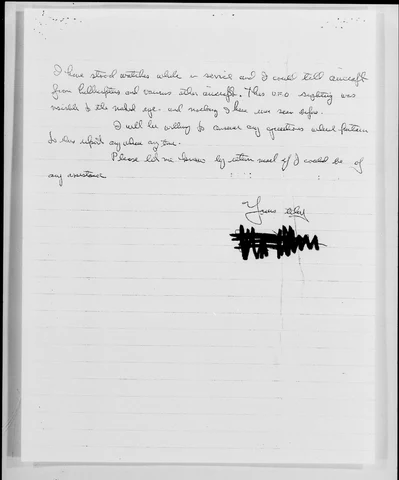 I have stood watches while in service and I could tell aircraft
from helicopters and various other aircraft. This UFO sighting was
visible to the naked eye. and nothing I have ever seen before.
I will be willing to answer any questions which pertain
to this report any where any time.
Please let me know by return mail if I could be of
any assistance
Yours